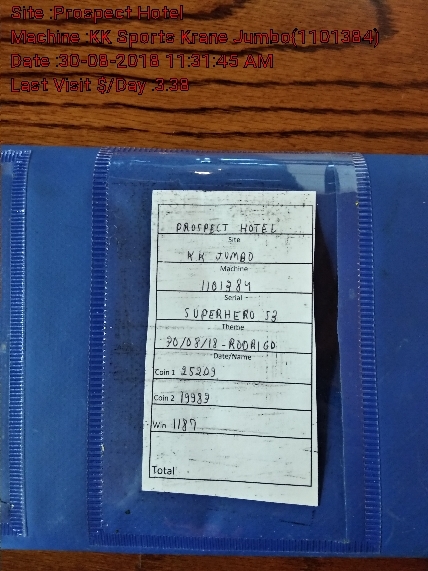 Site :Prospect Hotel
Machine :KK Sports Krane Jumbo(1101384)
Date :30-08-2018 11:31:45 AM
Last Visit $/Day :3.38
PROSPECT HOTEL
Site
KK JUMBO
Machine
1101384
Serial
SUPERHERO S3
Theme
30/08/18-RODRIGO
Date/Name
Coin 1 25203
Coin 2 19983
Win 1187
Total